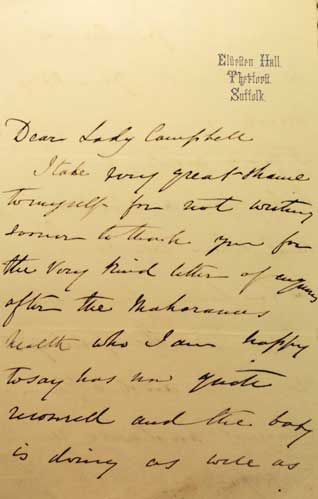 Elveden Hall.
Thetford.
Suffolk.
Dear Lady Campbell
I take very great shame
to myself for not writing
sooner to thank you for
the very kind letter of enquiries
after the Maharanees
health who I am happy
to say has now quite
recovered and the baby
is doing as well as